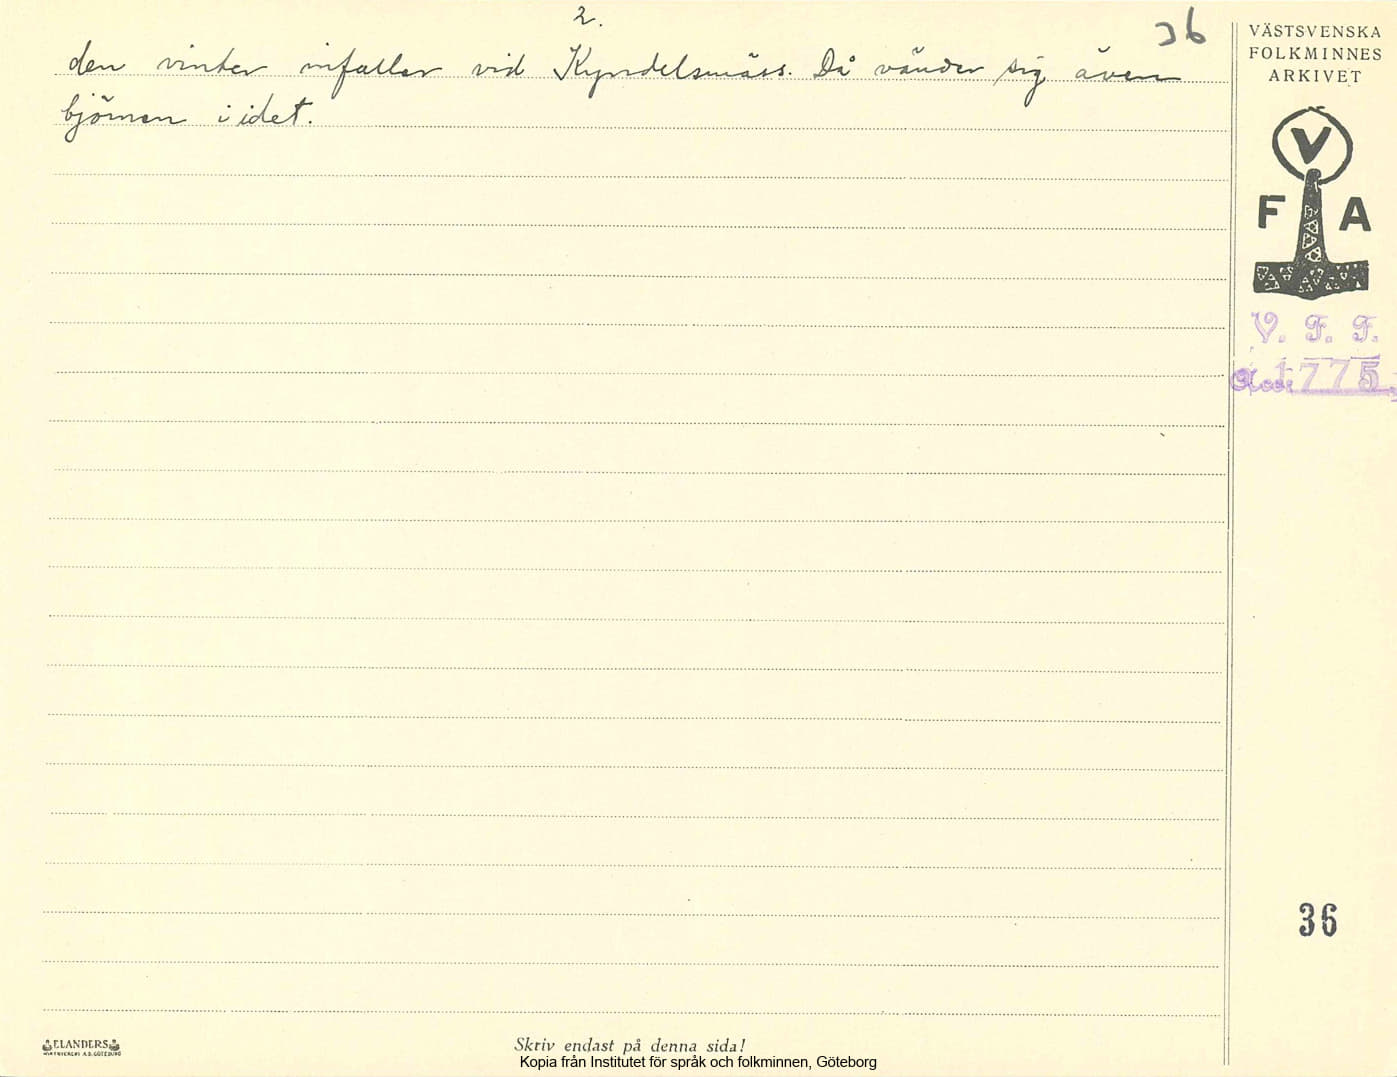 2.
36
den vinter infaller vid Kyndelsmäss. Då vänder sig även
björnen i idet.
VÄSTSVENSKA
FOLKMINNES
ARKIVET
V
F A
V. F. F.
Acc. 1775
36
ELANDERS
Skriv endast på denna sida!
Kopia från Institutet för språk och folkminnen, Göteborg